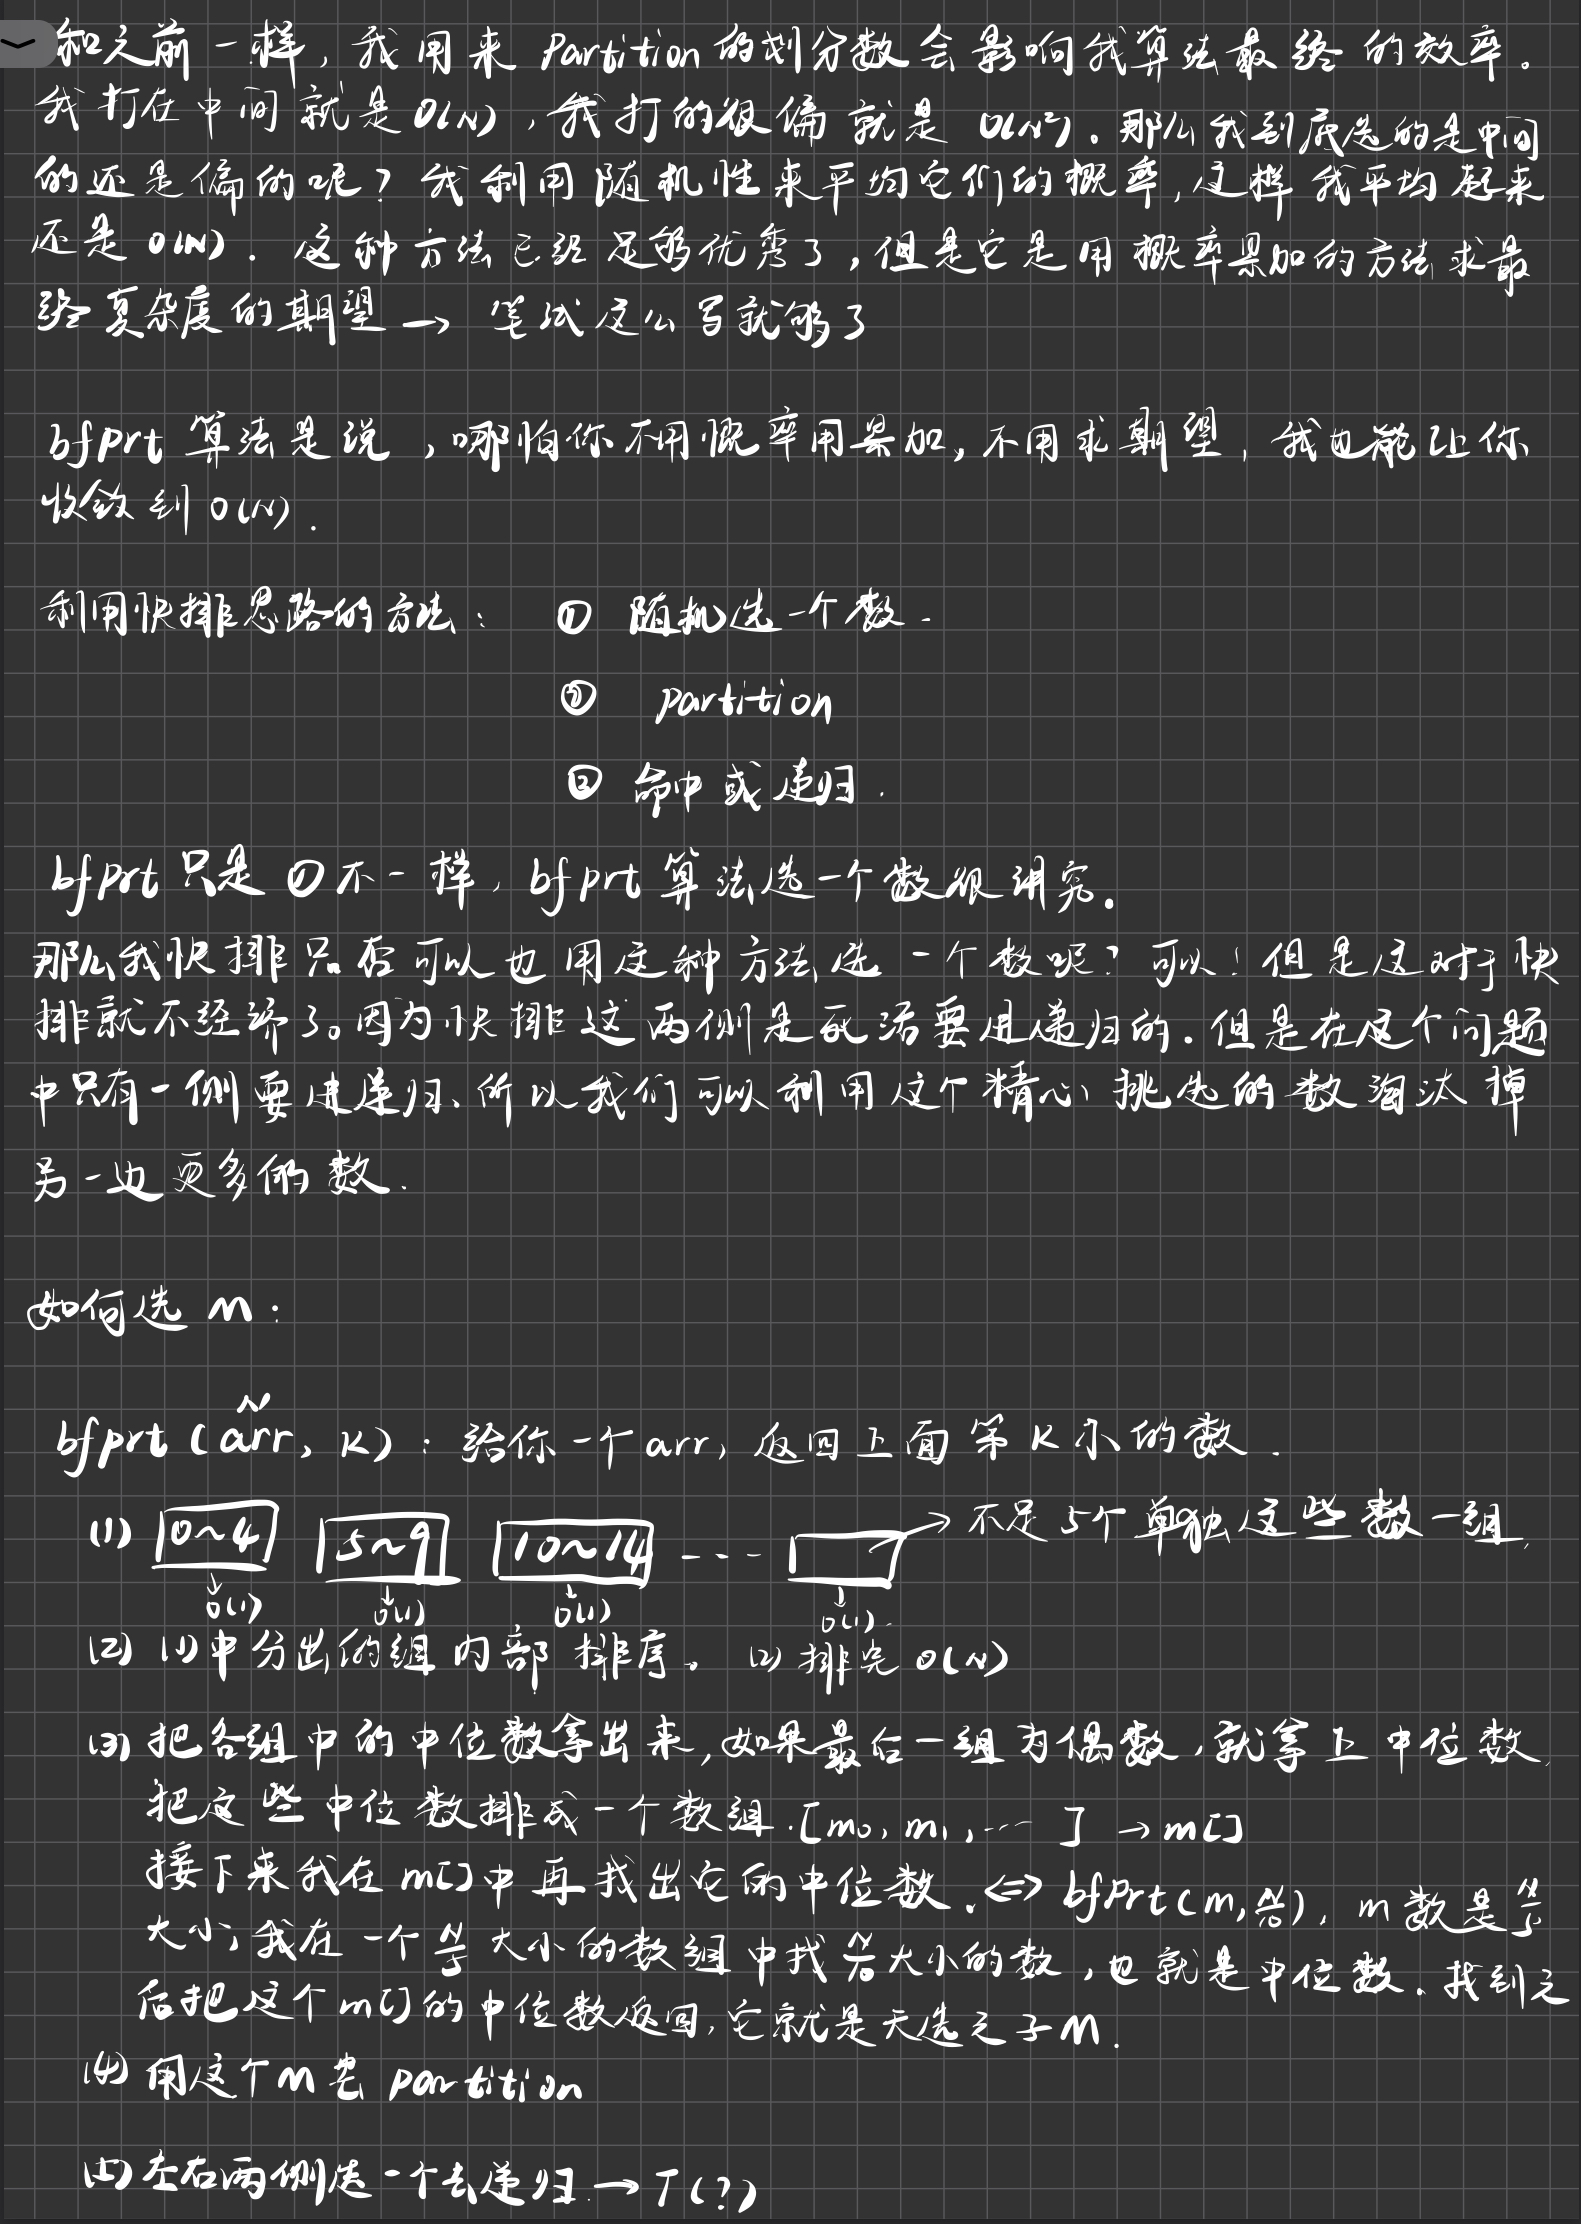 和之前一样，我用来 Partition 的划分数会影响我算法最终的效率。
我打在中间就是 O(N)，我打的很偏就是 O(N²)。那么我到底选的是中间
的还是偏的呢？我利用随机性来平均它们的概率，这样我平均起来
还是 O(N)．这种方法已经足够优秀了，但是它是用概率累加的方法求最
终复杂度的期望 → 笔试这么写就够了
bfprt 算法是说，哪怕你不用概率用累加，不用求期望，我也能让你
收敛到 O(N).
利用快排思路的方法： ① 随机选一个数．
② partition
③ 命中或递归．
bfprt 只是 ① 不一样，bfprt 算法选一个数很讲究．
那么我快排是否可以也用这种方法选一个数呢？可以！但是这对于快
排就不经济了。因为快排这两侧是死活要进递归的．但是在这个问题
中只有一侧要进递归、所以我们可以利用这个精心挑选的数淘汰掉
另一边更多的数．
如何选 m：
N
bfprt (arr, K)：给你一个 arr，返回上面第 K 小的数．
(1) 0~4 5~9 10~14 --- → 不足 5个 单独这些数一组，
O(1) O(1) O(1) O(1).
(2) (1)中分出的组内部排序。 (2) 排完 O(N)
(3) 把各组中的中位数拿出来，如果最后一组为偶数，就拿上中位数，
把这些中位数排成一个数组．[m₀, m₁, ··· ] → m[]
接下来我在 m[] 中再找出它的中位数．⟺ bfprt(m, N/10), m 数是 N/5
大小，我在一个 N/5 大小的数组中找 N/10 大小的数，也就是中位数．找到之
后把这个 m[] 的中位数返回，它就是天选之子 M．
(4) 用这个 M 去 partition
(5) 左右两侧选一个去递归 → T(?)